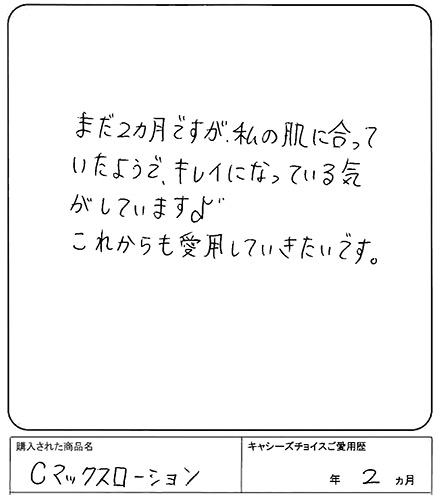 まだ2カ月ですが、私の肌に合って
いたようで、キレイになっている気
がしています♪
これからも愛用していきたいです。
購入された商品名
キャシーズチョイスご愛用歴
Cマックスローション
年 2 ヵ月